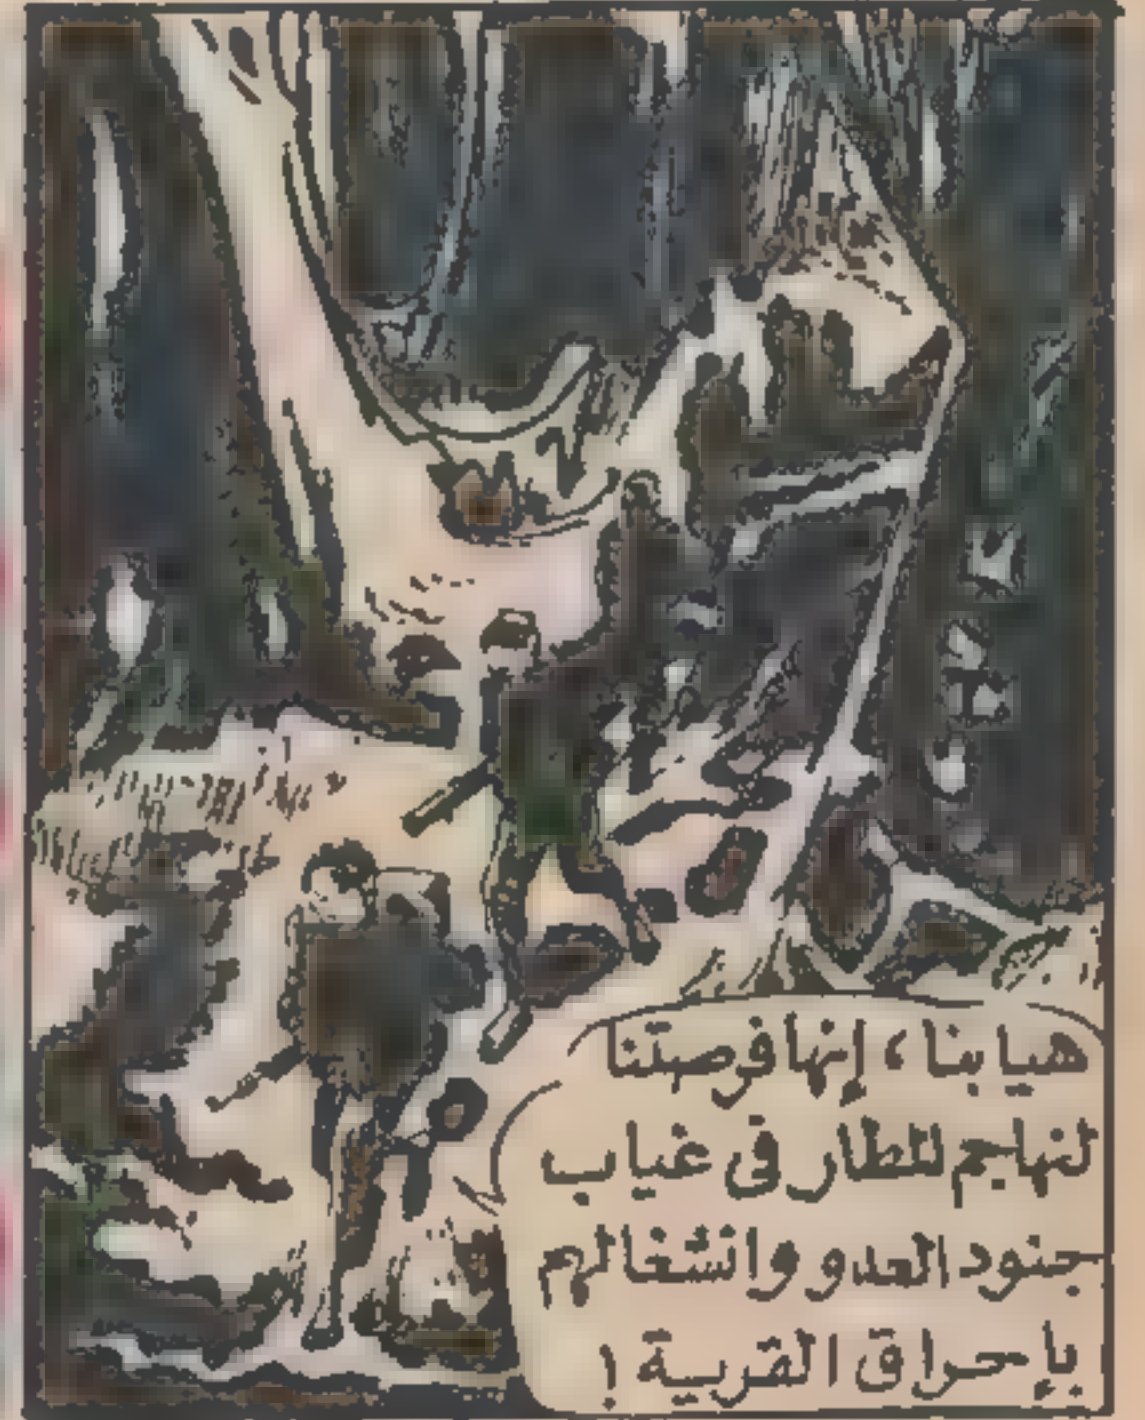 هيا بنا، إنها فرصتنا
لنهاجم المطار فى غياب
جنود العدو وانشغالهم
بإحراق القرية !